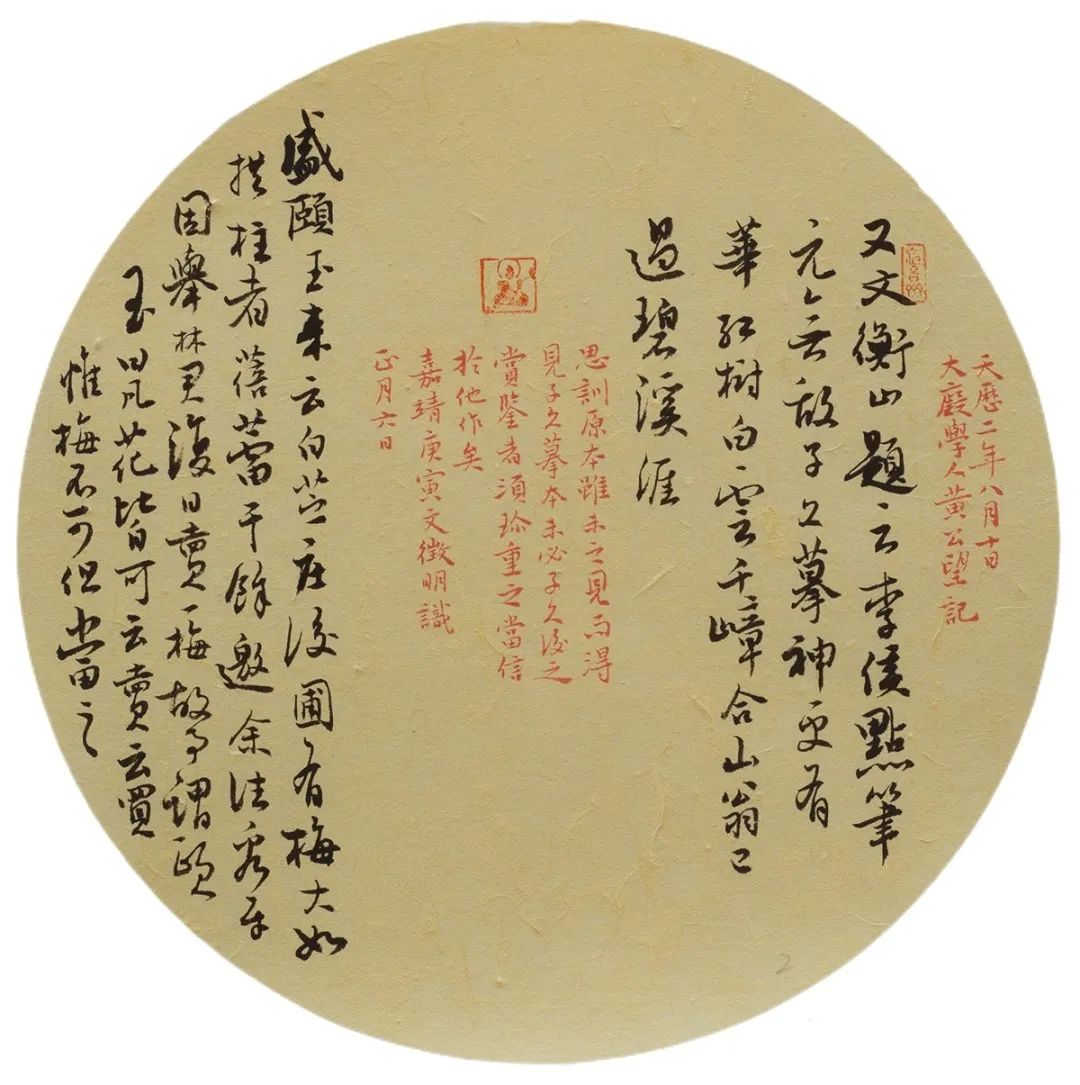 天曆二年八月十日
大癡學人黃公望記
又文衡山題云李侯點筆
元無敵子久摹神更有
華紅樹白雲千嶂合山翁已
過碧溪涯
思訓原本雖未之見而得
見子久摹本未必子久後之
賞鑒者須珍重之當信
於他作矣
嘉靖庚寅文徵明識
正月六日
盛頤玉來云白苧庄後圃有梅大如
拱柱者蓓蕾千餘邀余往看予
因舉林君復日賣一梅故事謂頤
玉曰凡花皆可云賣云買
惟梅不可但當云